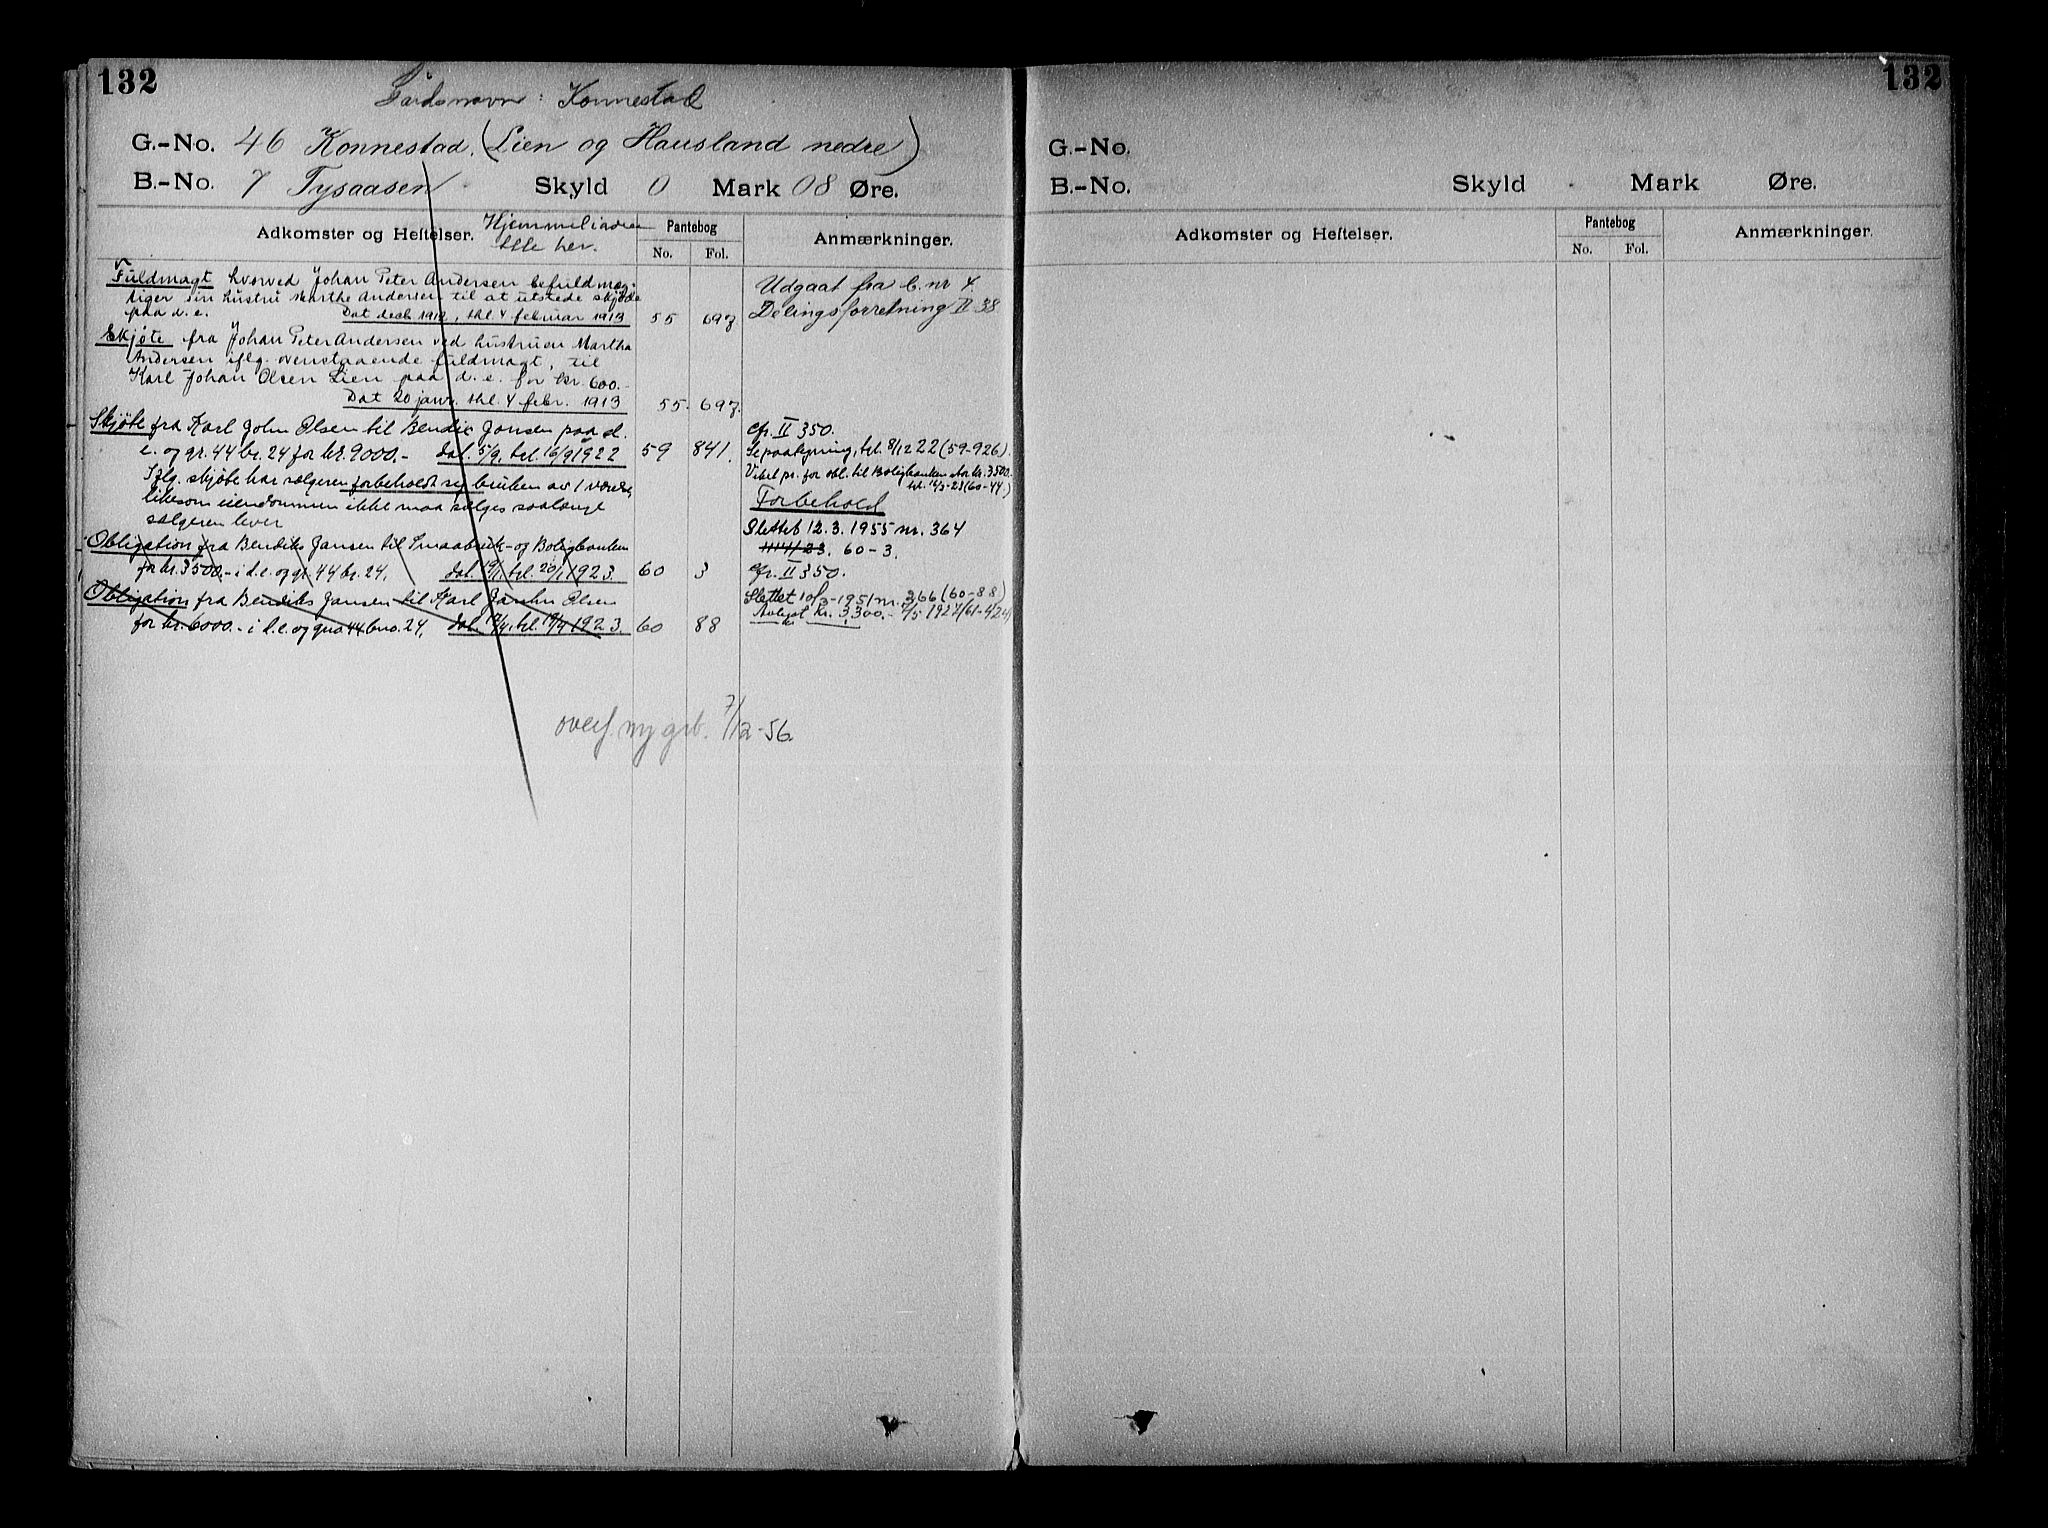 132
Gårdsnavn: Konnestad
G.-No. 46 Konnestad. (Lien og Hausland nedre)
B.-No. 7 Tysaasen Skyld 0 Mark 08 Øre.
Adkomster og Heftelser. Pantebog Anmærkninger.
No. Fol.
Fuldmagt hvorved Johan Peter Andersen befuldmæg-
tiger sin hustru Marthe Andersen til at utstede skjøde
paa d.e. Dat decb 1912, thl. 4 februar 1913 55 697
Udgaat fra b.nr 4.
Delingsforretning II 38
Skjøte fra Johan Peter Andersen ved hustruen Martha
Andersen iflg. ovenstaaende fuldmagt, til
Karl Johan Olsen Lien paa d.e. for kr. 600.-
Dat 20 janr. thl. 4 febr. 1913 55. 697.
Skjøte fra Karl John Olsen til Bendix Jansen paa d.
e. og gr. 44 br. 24 for kr. 9000.- dat. 5/9, tel. 16/9 1922 59 841.
Iflg. skjøte har sælgeren forbeholdt sig bruken av 1 værelse,
likesom eiendommen ikke maa sælges saalænge
sælgeren lever
cfr. II 350.
8/12 22 (59-926).
Vikel pr. for obl. til Boligbanken stor kr. 3500.-
Forbehold
Slettet 12.3.1955 nr. 364
Obligation fra Bendiks Jansen til Smaabruk- og Boligbanken
for kr. 3500.- i d.e. og gr. 44 br. 24. dat. 19/1, tel. 20/1 1923. 60 3
60-3.
cfr. II 350.
Obligation fra Bendiks Jansen til Karl John Olsen
for kr. 6000.- i d.e. og gno 44 bno. 24, 1923. 60 88
Slettet 10/3-1951 nr. 366 (60-88)
Avbetalt kr. 3.300.- 1927 (61-424)
overf. ny grb. 7/12-56.
132
G.-No.
B.-No. Skyld Mark Øre.
Adkomster og Heftelser. Pantebog Anmærkninger.
No. Fol.